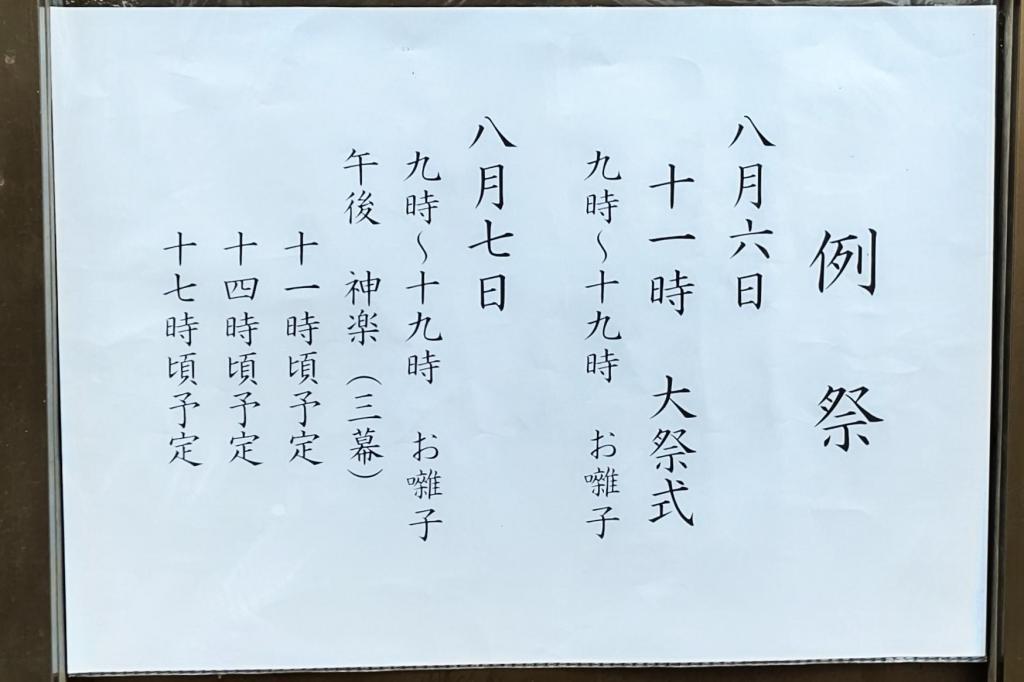 例　祭
八月六日
十一時　大祭式
九時～十九時　お囃子
八月七日
九時～十九時　お囃子
午後　神楽（三幕）
十一時頃予定
十四時頃予定
十七時頃予定